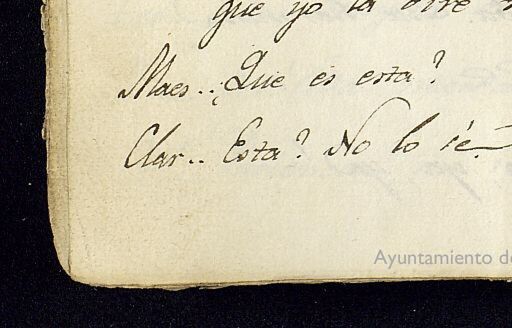 que yo la dire
Maes.. ¿Que es esta?
Clar.. Esta? No lo sé.
Ayuntamiento de